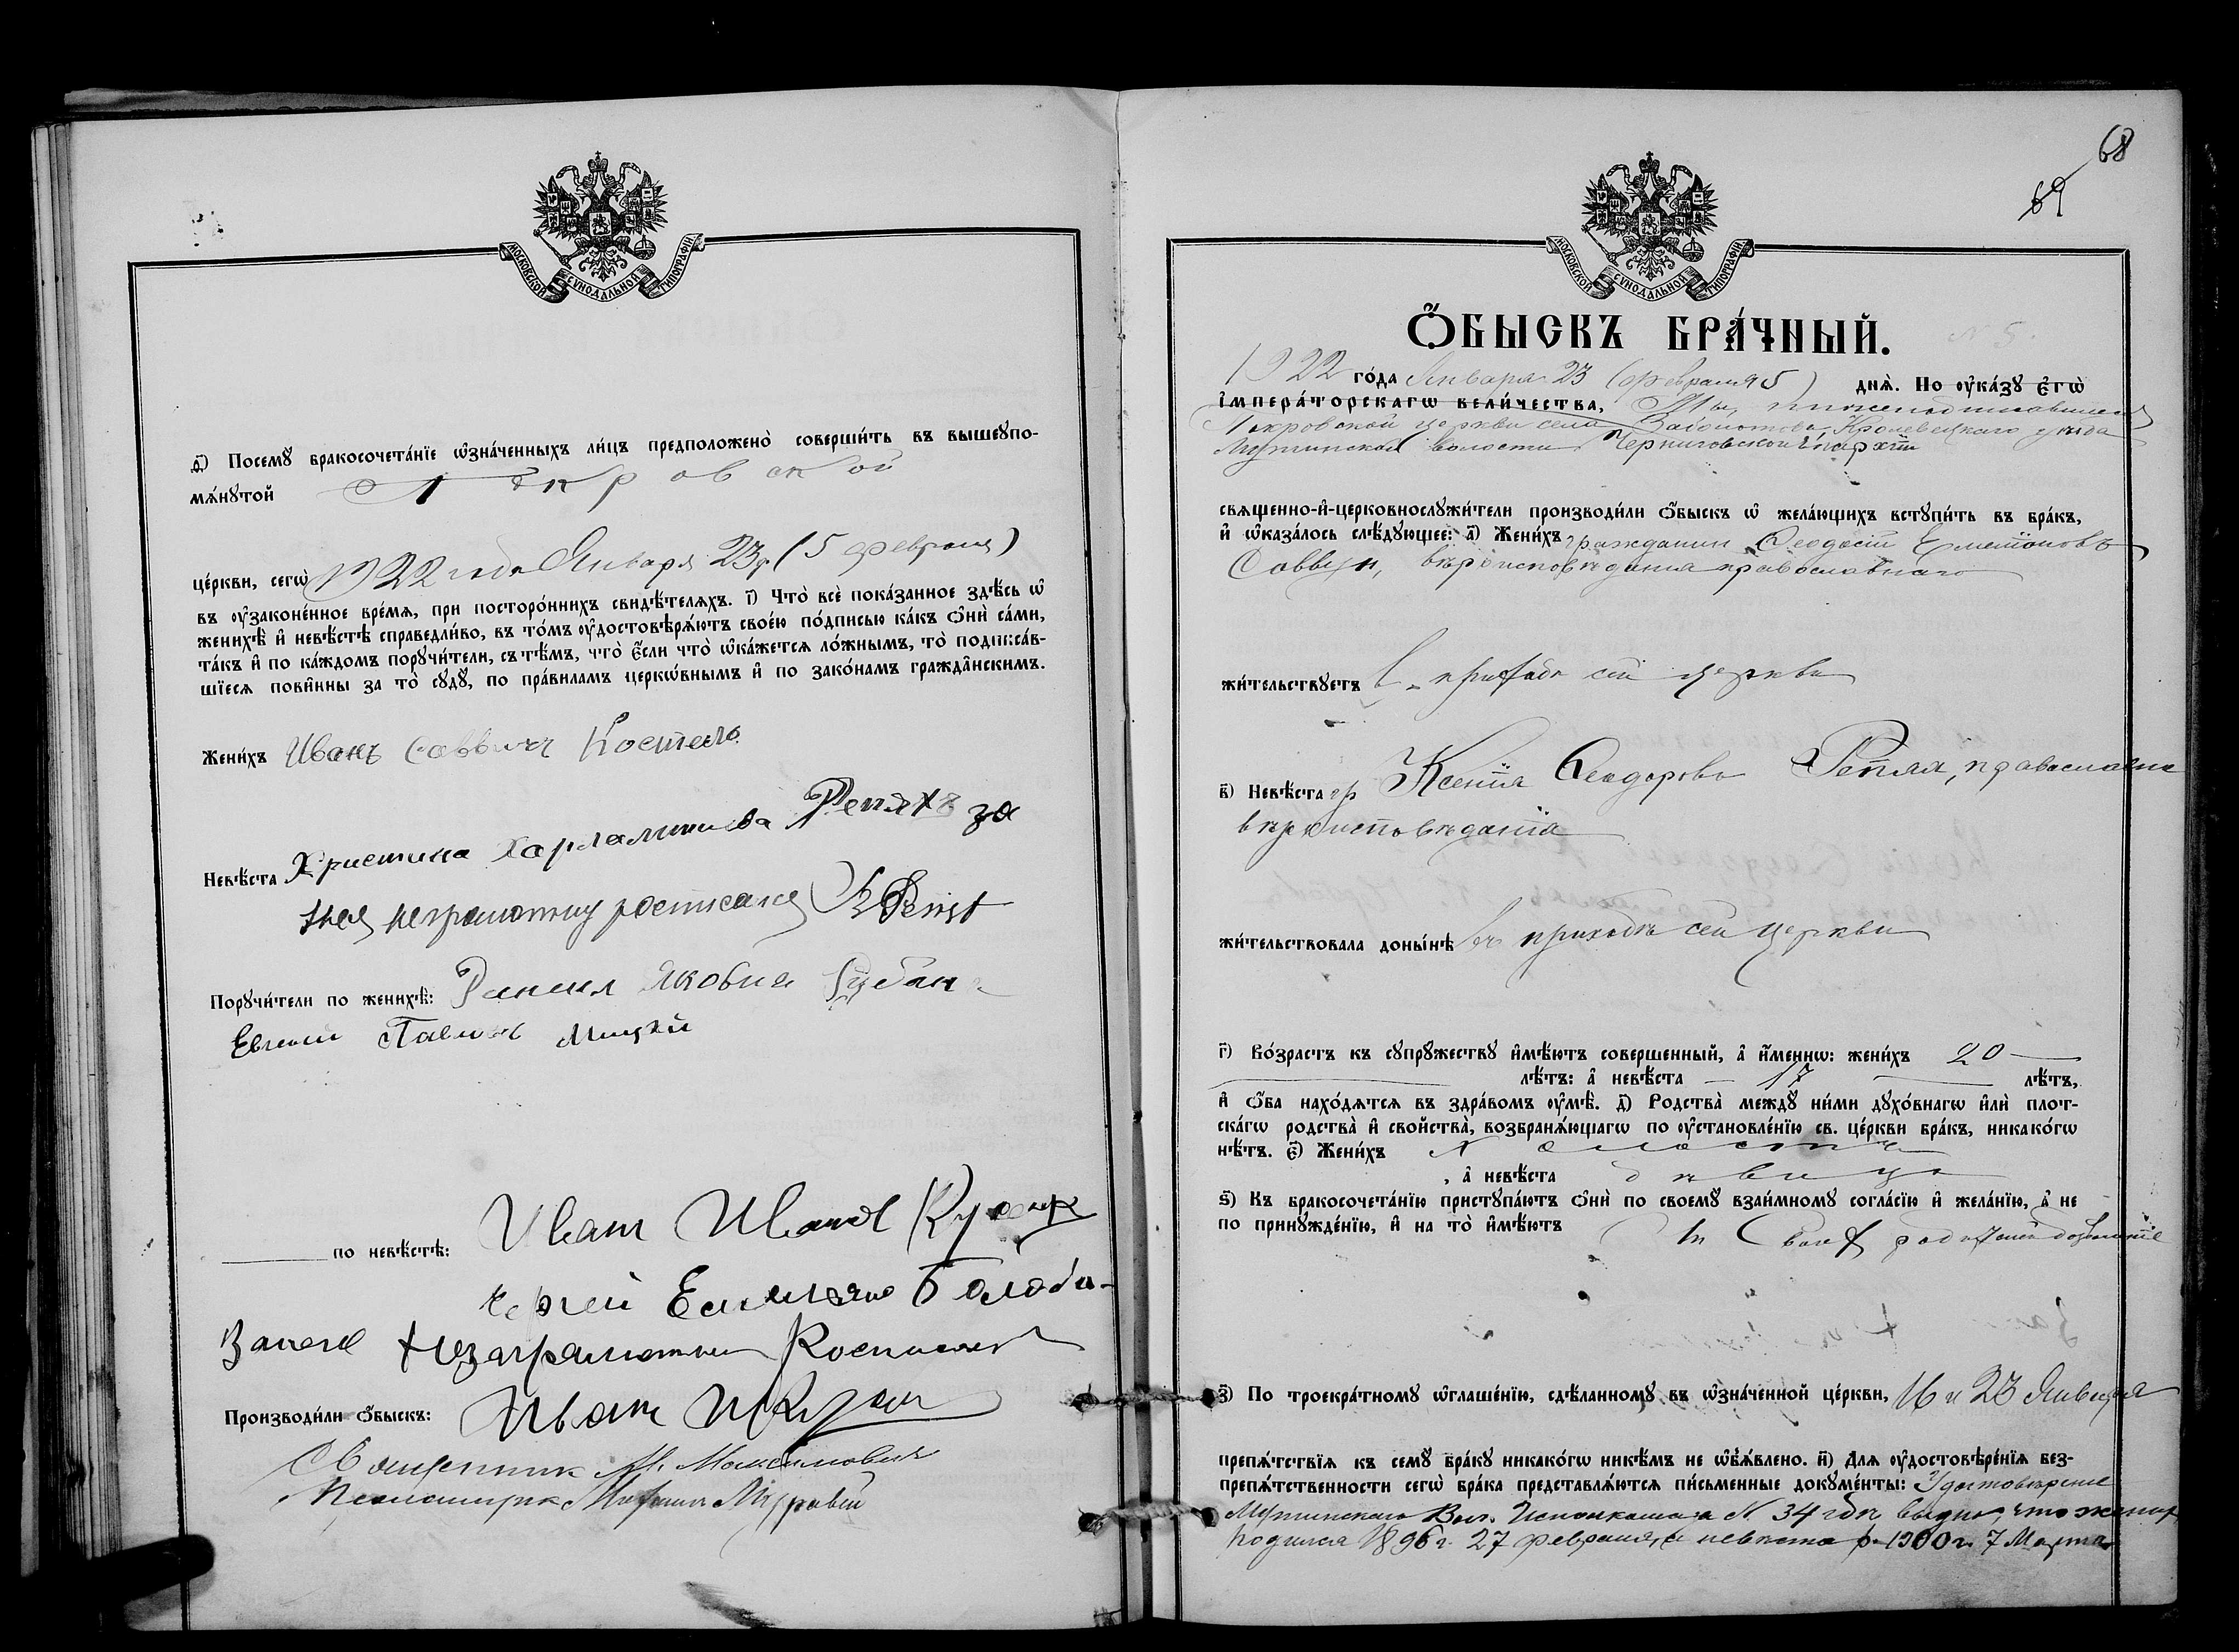 МОСКОВСКОЙ СѴНОДАЛЬНОЙ ТИПОГРАФІИ
д҃) Посемꙋ бракосочета́нїе ѡ҆зна́ченныхъ ли́цъ предположено̀ соверши́ть въ вышеꙋпо-
мѧ́нꙋтой Покровской
це́ркви, сегѡ̀ 1922 года Января 23 д. (5 февраля)
въ ᲂу҆законе́нное вре́мѧ, при посторо́ннихъ свидѣ́телѧхъ. і҃) Что̀ всѐ пока́занное здѣ́сь ѡ҆
женихѣ̀ и҆ невѣ́стѣ справедли́во, въ то́мъ ᲂу҆достовѣрѧ́ютъ свое́ю по́дписью ка́къ ѻ҆нѝ са́ми,
та́къ и҆ по ка́ждомъ порꙋчи́тели, съ тѣ́мъ, что̀ є҆́сли что̀ ѡ҆ка́жетсѧ ло́жнымъ, то̀ подписа́в-
шїесѧ пови́нны за то̀ сꙋдꙋ̀, по пра́виламъ церкѡ́внымъ и҆ по зако́намъ гражда́нскимъ.
Жени́хъ Иванъ Саввичъ
Невѣ́ста Христина Харлампиева Репяхъ за
нея неграмотну росписался
Порꙋчи́тели по женихѣ̀: Якович Рубан
Евгений Павлов
по невѣ́стѣ: Иван Иванов
Сергей
неграмотных
Производи́ли ѻ҆́быскъ: Иван
Священник М. Максимович
Псаломщик
68
69
МОСКОВСКОЙ СѴНОДАЛЬНОЙ ТИПОГРАФІИ
Ѻ҆́БЫСКЪ БРА́ЧНЫЙ.
N 5.
1922 го́да Января 23 (февраля 5) днѧ̀. По ᲂу҆ка́зꙋ є҆гѡ̀
і҆мпера́торскагѡ вели́чества, Мы, нижеподписавшиеся
Покровской церкви села Заболотова, Кролевецкого уѣзда
Мутинской волости Черниговской Епархіи
свѧщенно-и҆-церковнослꙋжи́тели производи́ли ѻ҆́быскъ ѡ҆ жела́ющихъ встꙋпи́ть въ бра́къ,
и҆ ѡ҆каза́лось слѣ́дꙋющее: а҃) Жени́хъ гражданин Ѳеодосій
вѣроисповѣдания православнаго
жи́тельствꙋетъ в приходѣ сей церкви
в҃) Невѣ́ста гр Ксенія Ѳеодорова Репях, православна
вѣроисповѣданія
жи́тельствовала доны́нѣ въ приходѣ сей церкви
г҃) Во́зрастъ къ сꙋпрꙋ́жествꙋ и҆мѣ́ютъ соверше́нный, а҆ и҆́меннѡ: жени́хъ 20
лѣ́тъ: а҆ невѣ́ста 17 лѣ́тъ,
и҆ ѻ҆́ба нахо́дѧтсѧ въ здра́вомъ ᲂу҆мѣ̀. д҃) Родства̀ междꙋ̀ ни́ми дꙋхо́внагѡ и҆лѝ плот-
ска́гѡ родства̀ и҆ сво́йства̀, возбранѧ́ющагѡ по ᲂу҆становле́нїю св. це́ркви бра́къ, никако́гѡ
нѣ́тъ. є҃) Жени́хъ холостъ
, а҆ невѣ́ста дѣвица
ѕ҃) Къ бракосочета́нїю пристꙋпа́ютъ ѻ҆нѝ по своемꙋ̀ взаи́мномꙋ согла́сїю и҆ жела́нїю, а҆ не
по принꙋжде́нїю, и҆ на то̀ и҆мѣ́ютъ
з҃) По троекра́тномꙋ ѡ҆глаше́нїю, сдѣ́ланномꙋ въ ѡ҆зна́ченной це́ркви, 16 и 23 Января
препѧ́тствїѧ къ семꙋ̀ бра́кꙋ никако́гѡ никѣ́мъ не ѡ҆б̾ѧ́влено. и҃) Длѧ ᲂу҆достовѣре́нїѧ без-
препѧ́тственности сегѡ̀ бра́ка представлѧ́ютсѧ пи́сьменные докꙋме́нты: Удостовѣрение
Мутинского Вол. Исполкома за N 34 видно, что жених
родился 1896 г. 27 февраля, а невѣста р. 1900 г. 7 Марта